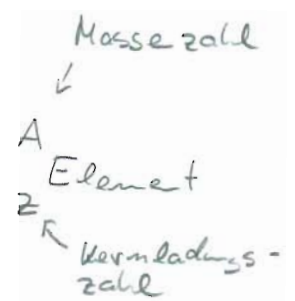 Massezahl
A
Element
Z
Kernladungs-
zahl